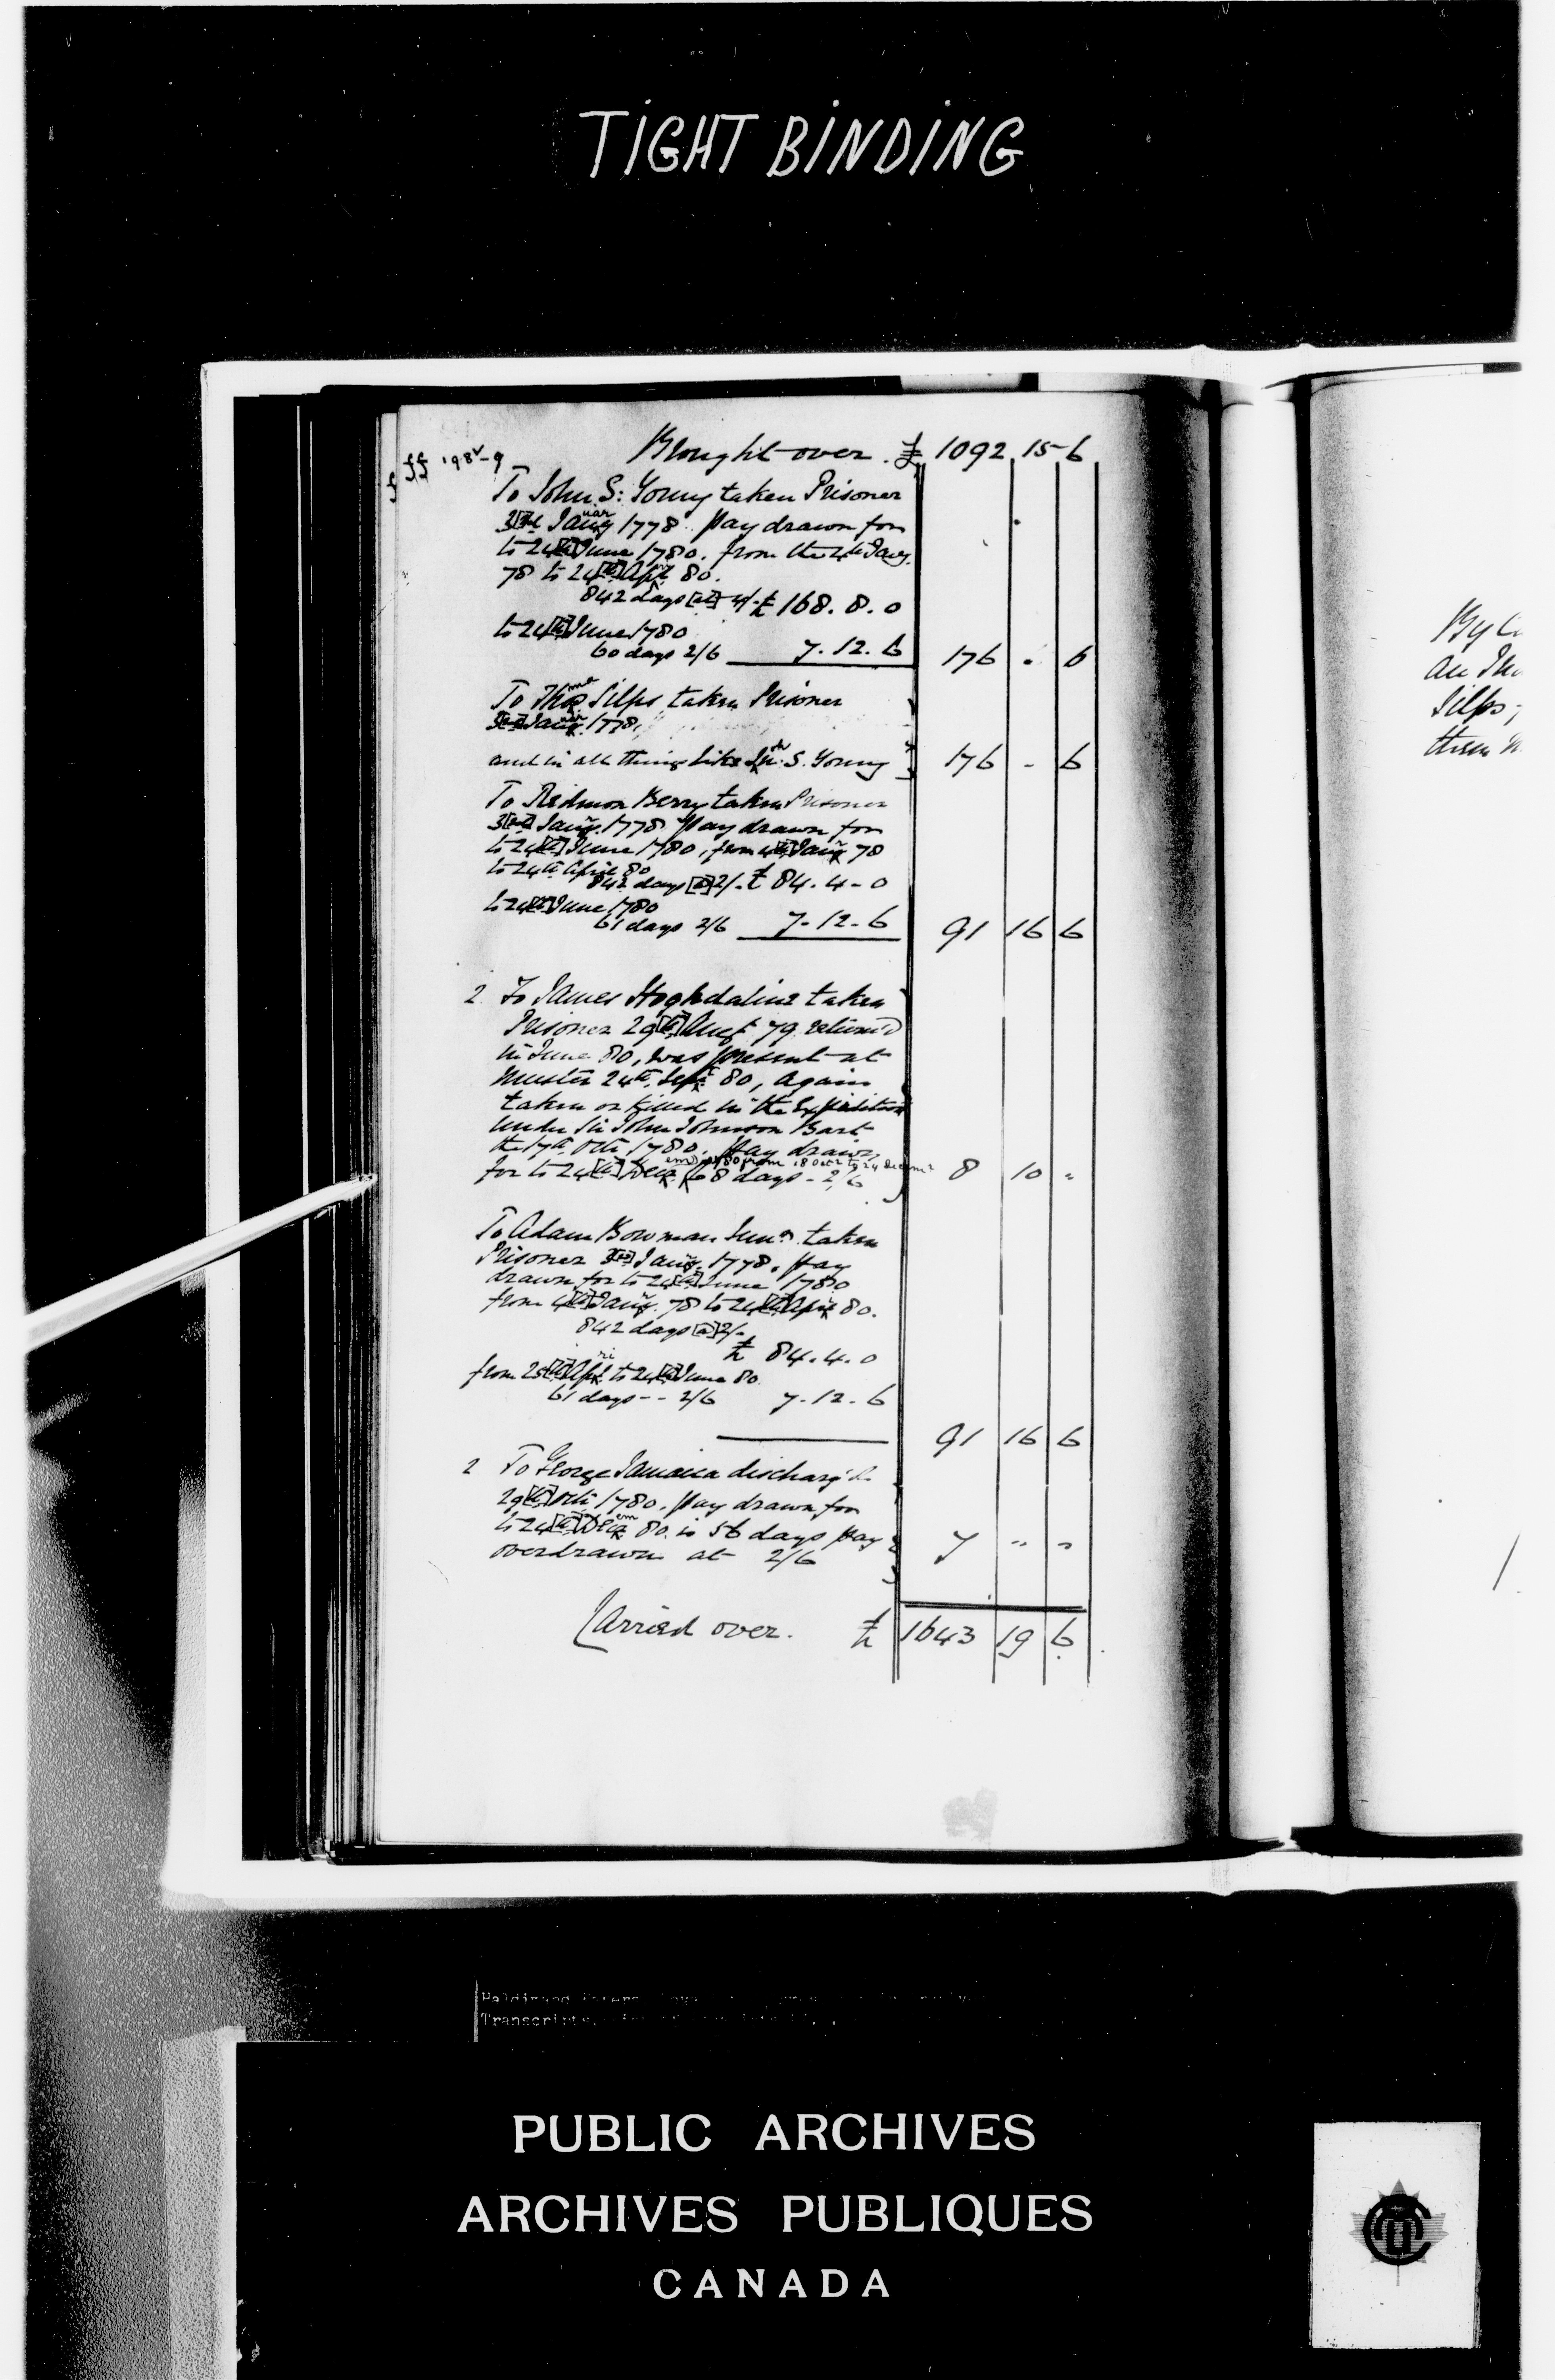 TIGHT BINDING
ff 198v-9
Brought over. £ 1092 15 6
To John S: Young taken Prisoner
3[rd] January 1778. Pay drawn for
to 24[th] June 1780. from the 4th Jany.
78 to 24[th] Apl 80.
842 days [at] 4/- £ 168. 8. 0
to 24[th] June 1780
60 days 2/6 7. 12. 6 176 . 6
To Silps taken Prisoner
3[rd] Januar 1778,
and in all things like Jn. S. Young 176 - 6
To Redmon Berry taken Prisoner
3[rd] Jany. 1778 Pay drawn for
to 24[th] June 1780, from 4[th] Jany 78
to 24th April 80
842 days [a] 2/- £ 84. 4 - 0
to 24[th] June 1780
61 days 2/6 7 - 12 - 6 91 16 6
2 To James Hoghdaline taken
Prisoner 29[th] Augt 79 return'd
in June 80, was present at
Muster 24th. Sept 80, Again
taken or killed in the Expedition
under Sir John Johnson Bart
the 17th. Octr 1780. Pay drawn
for to 24[th] Decem 80 from 18 Octr to 24 Decemr
68 days - 2/6 8 10 -
To Adam Bowman Senr. taken
Prisoner 3[rd] Jany. 1778. Pay
drawn for to 24[th] June 1780
from 4[th] Jany. 78 to 24[th] Apr 80.
842 days [a] 2/-
£ 84. 4. 0
from 25[th] Apri to 24[th] June 80.
61 days -- 2/6 7 - 12 - 6
91 16 6
2 To George Jamaica discharg'd
29[th] Octr 1780. Pay drawn for
to 24[th] Decem 80. is 56 days pay
overdrawn at 2/6 7 " "
Carried over. £ 1643 19 6
By
an
Silps,
them
Transcripts,
PUBLIC ARCHIVES
ARCHIVES PUBLIQUES
CANADA